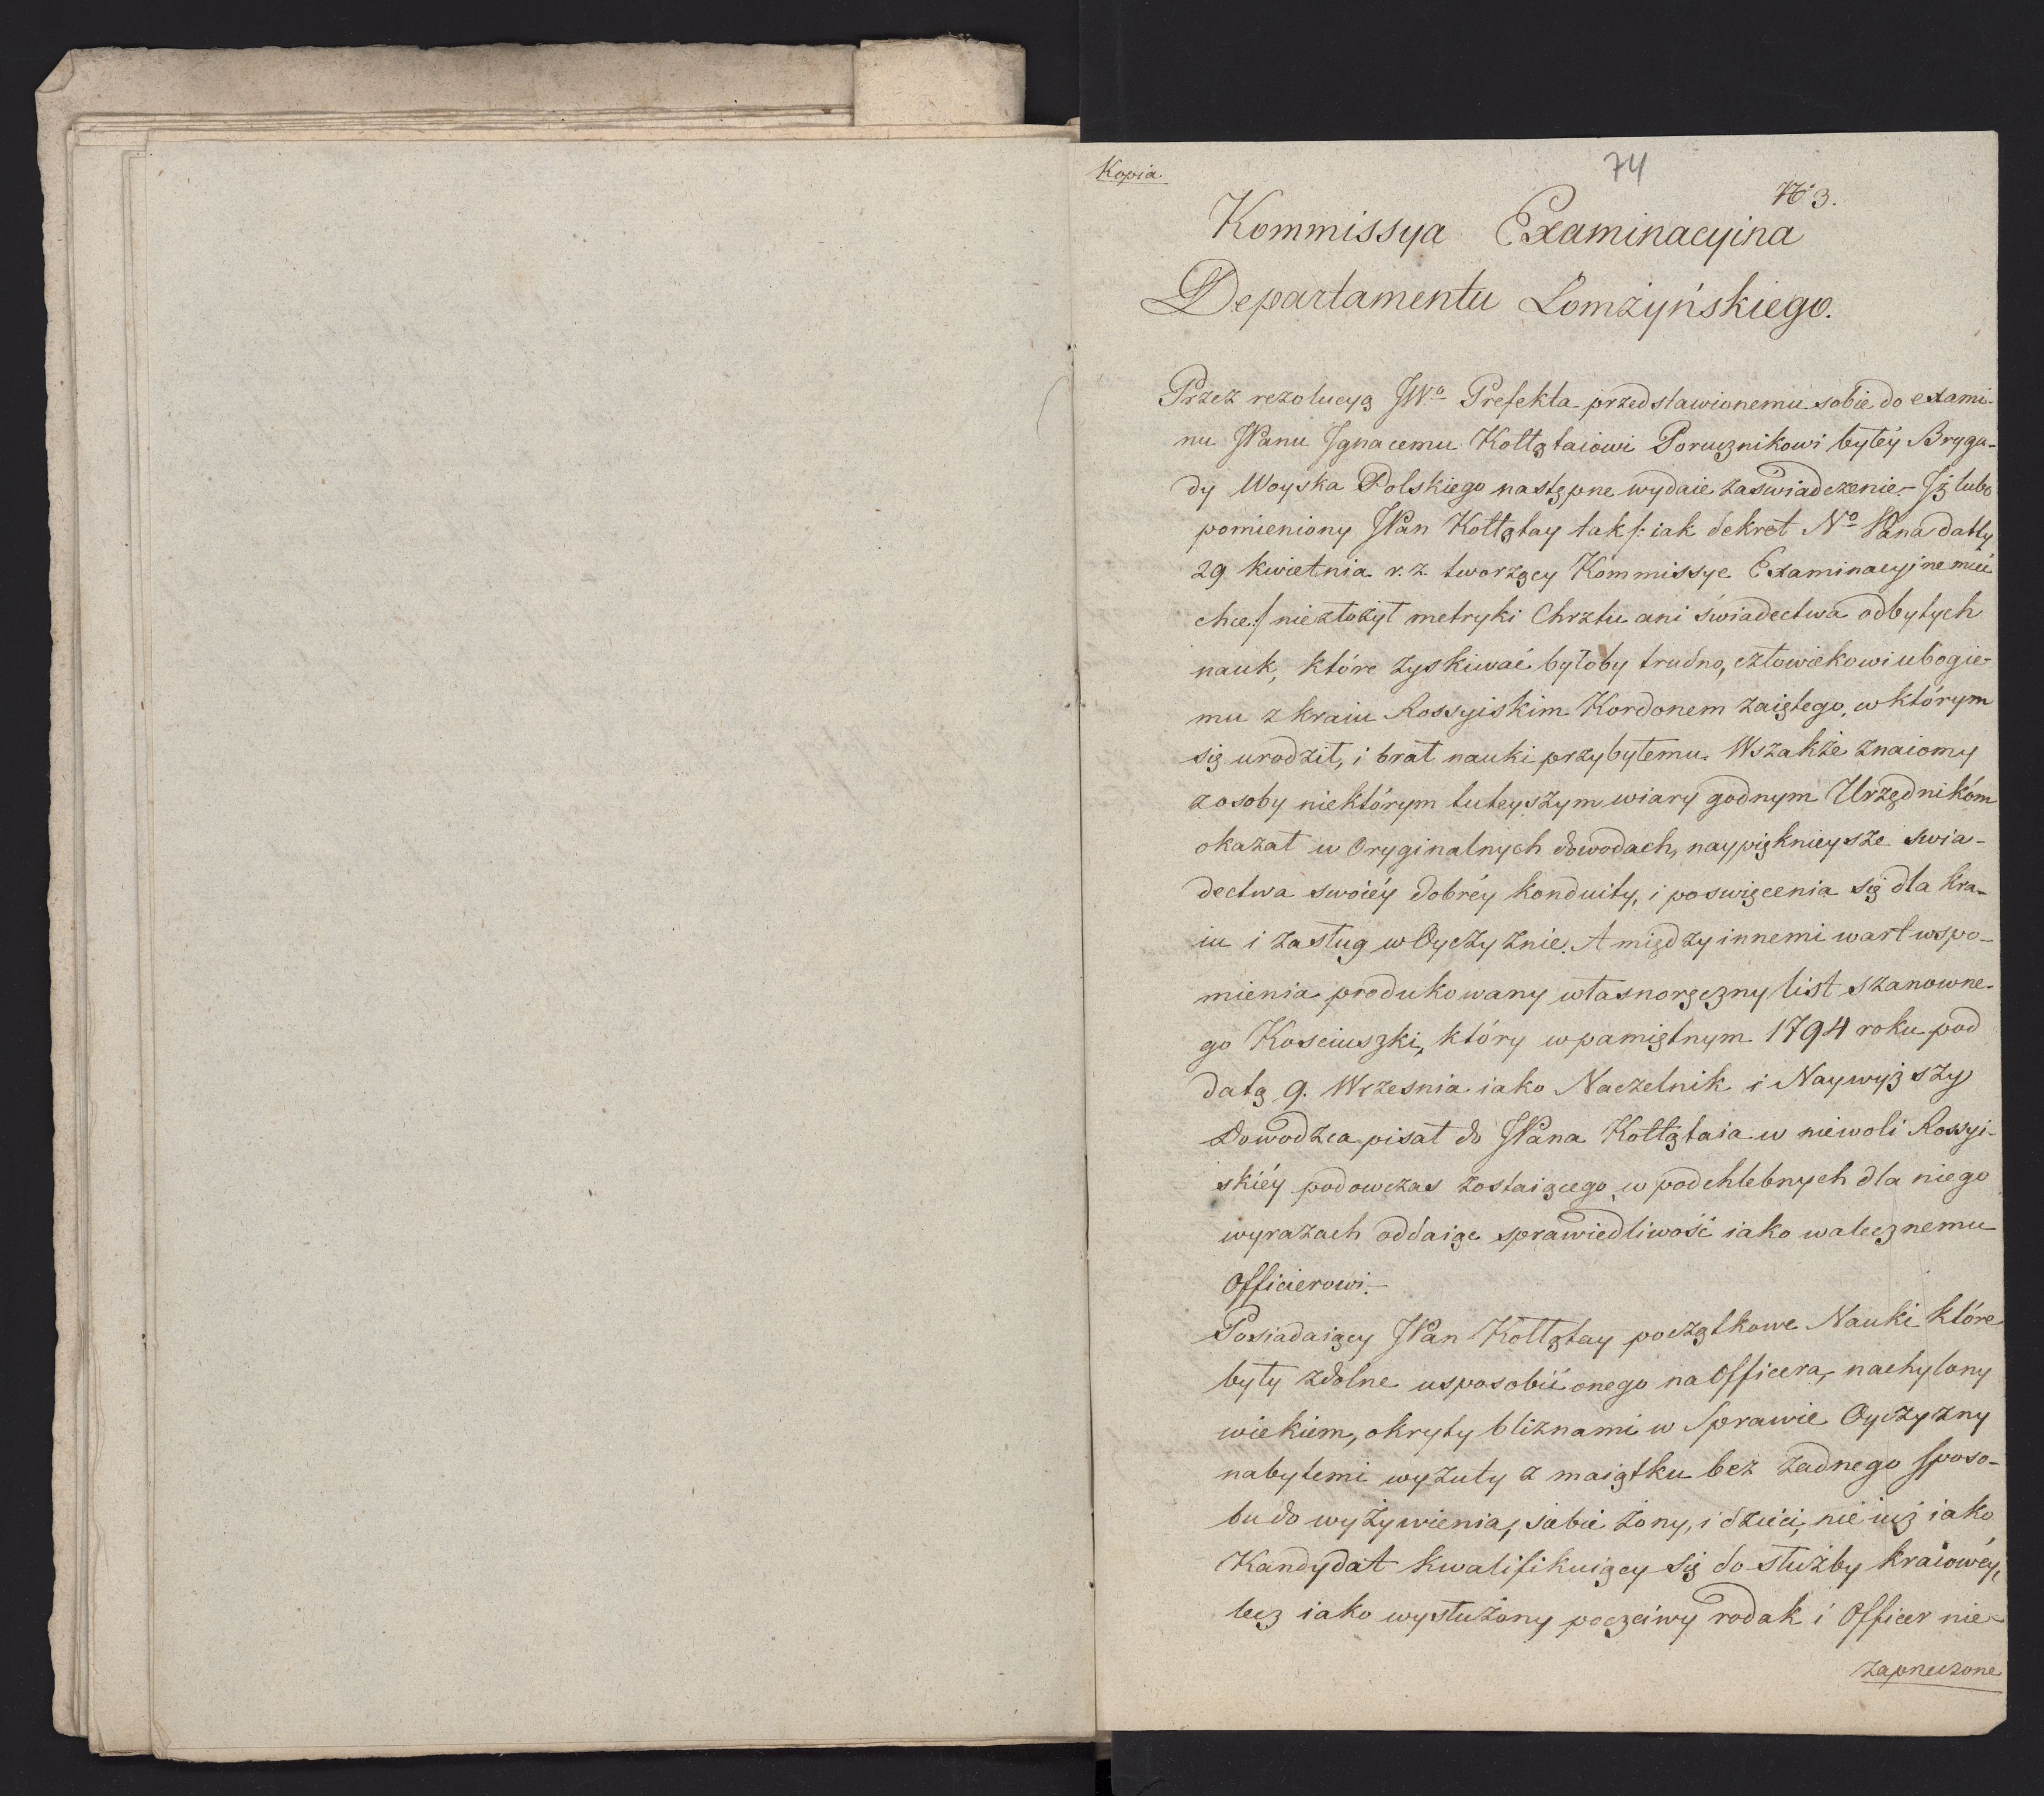 Kopia
74
N° 3.
Kommissya Examinacyina
Departamentu Łomżyńskiego.
Przez rezolucyą JWo Prefekta przedstawionemu sobie do exami-
nu JPanu Jgnacemu Kołłątaiowi Porucznikowi byłéy Bryga-
dy Woyska Polskiego następne wydaie zaświadczenie. – Jż lubo
pomieniony JPan Kołłątay tak /: iak dekret No Pana datty
29 kwietnia r. z. tworzący Kommissye Examinacyjne mieć
chce :/ nie złożył metryki Chrztu ani świadectwa odbytych
nauk, które zyskiwać byłoby trudno, człowiekowi ubogie-
mu z kraiu Rossyiskim Kordonem zaiętego, w którym
się urodził, i brał nauki przybyłemu. Wszakże znaiomy
z osoby niektórym tuteyszym wiary godnym Urzędnikóm
okazał w Oryginalnych dowodach, naypięknieysze swia-
dectwa swoiéy dobréy konduity, i poswięcenia się dla kra-
iu i zasług w Oyczyznie. A między innemi wart wspo-
mienia produkowany własnoręczny list szanowne-
go Kosciuszki, który w pamiętnym 1794 roku pod
datą 9. Wrzesnia iako Naczelnik i Naywyższy
Dowodzca pisał do JPana Kołłątaia w niewoli Rossyi-
skiéy podowczas zostaiącego, w podchlebnych dla niego
wyrazach oddaiąc sprawiedliwość iako walecznemu
Officierowi. –
Posiadaiący JPan Kołłątay początkowe Nauki które
były zdolne usposobić onego na Officera, nachylony
wiekiem, okryty bliznami w Sprawie Oyczyzny
nabytemi wyzuty z maiątku bez żadnego sposo-
bu do wyżywienia, siebie żony, i dzieci, nie iuż iako
Kandydat kwalifikuiący się do służby kraiowéy,
lecz iako wysłużony poczciwy rodak i Officer nie-
zaprzeczone